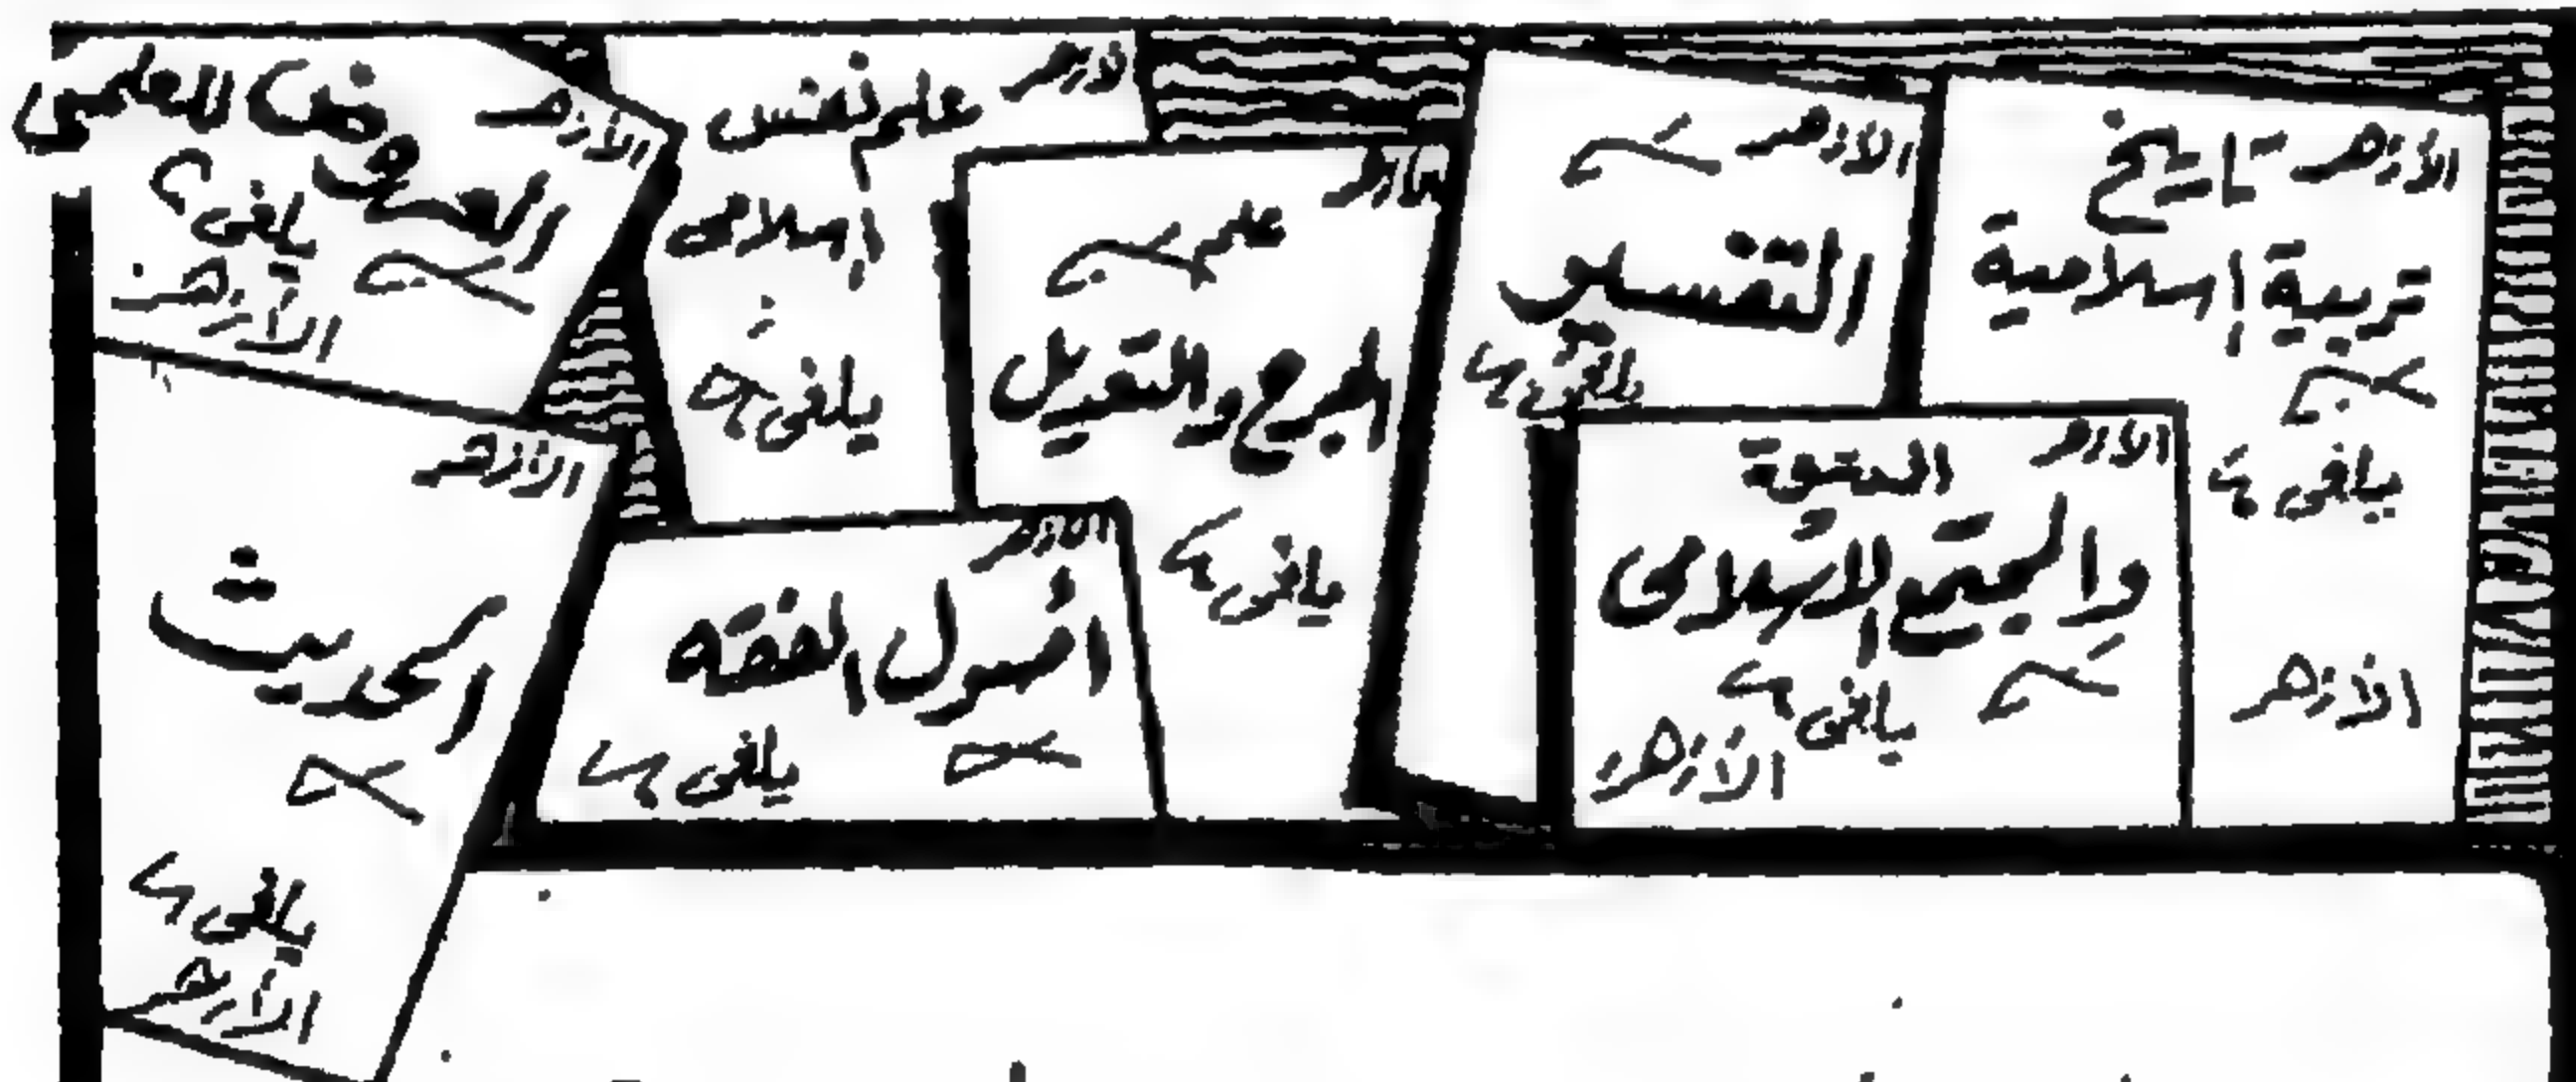 الأزهر تاريخ
تربية إسلامية
يلغى
الأزهر
الأزهر
التفسير
يلغى
الأزهر
والمجتمع الإسلامى
يلغى
الأزهر
الأزهر
علم
الجرح والتعديل
يلغى
الأزهر
علم نفس
إسلامى
يلغى
الأزهر
أصول الفقه
يلغى
الأزهر
العروض للعلمى
يلغى
الأزهر
الأزهر
الحديث
يلغى
الأزهر